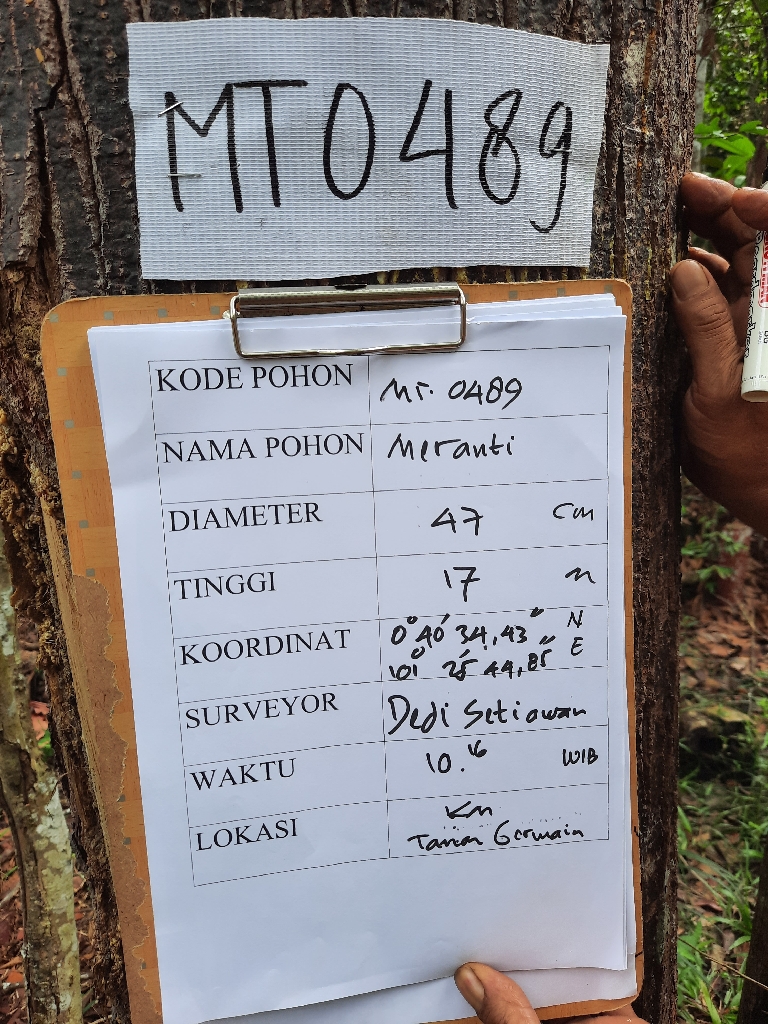 MT0489
KODE POHON MT. 0489
NAMA POHON Meranti
DIAMETER 47 cm
TINGGI 17 m
KOORDINAT 0° 40' 34,43" N
101° 25' 44,85" E
SURVEYOR Dedi Setiawan
WAKTU 10.16 WIB
LOKASI